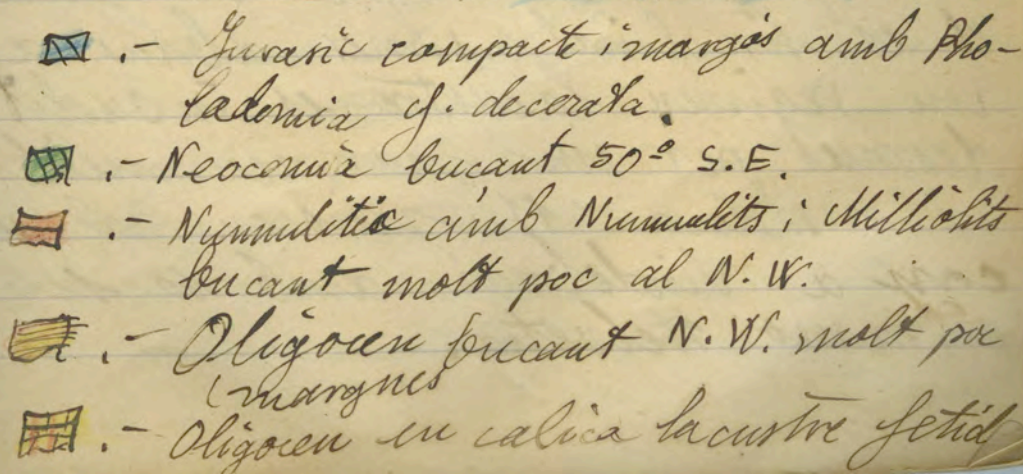 .- Jurasic compacte i margós amb Pho-
ladomia cf. decorata.
.- Neocomià bucant 50º S.E.
.- Nummulitic amb Nummulits i Milliolits
bucant molt poc al N.W.
.- Oligocen bucant N.W. molt poc
(margues
.- Oligocen en caliça lacustre fetid